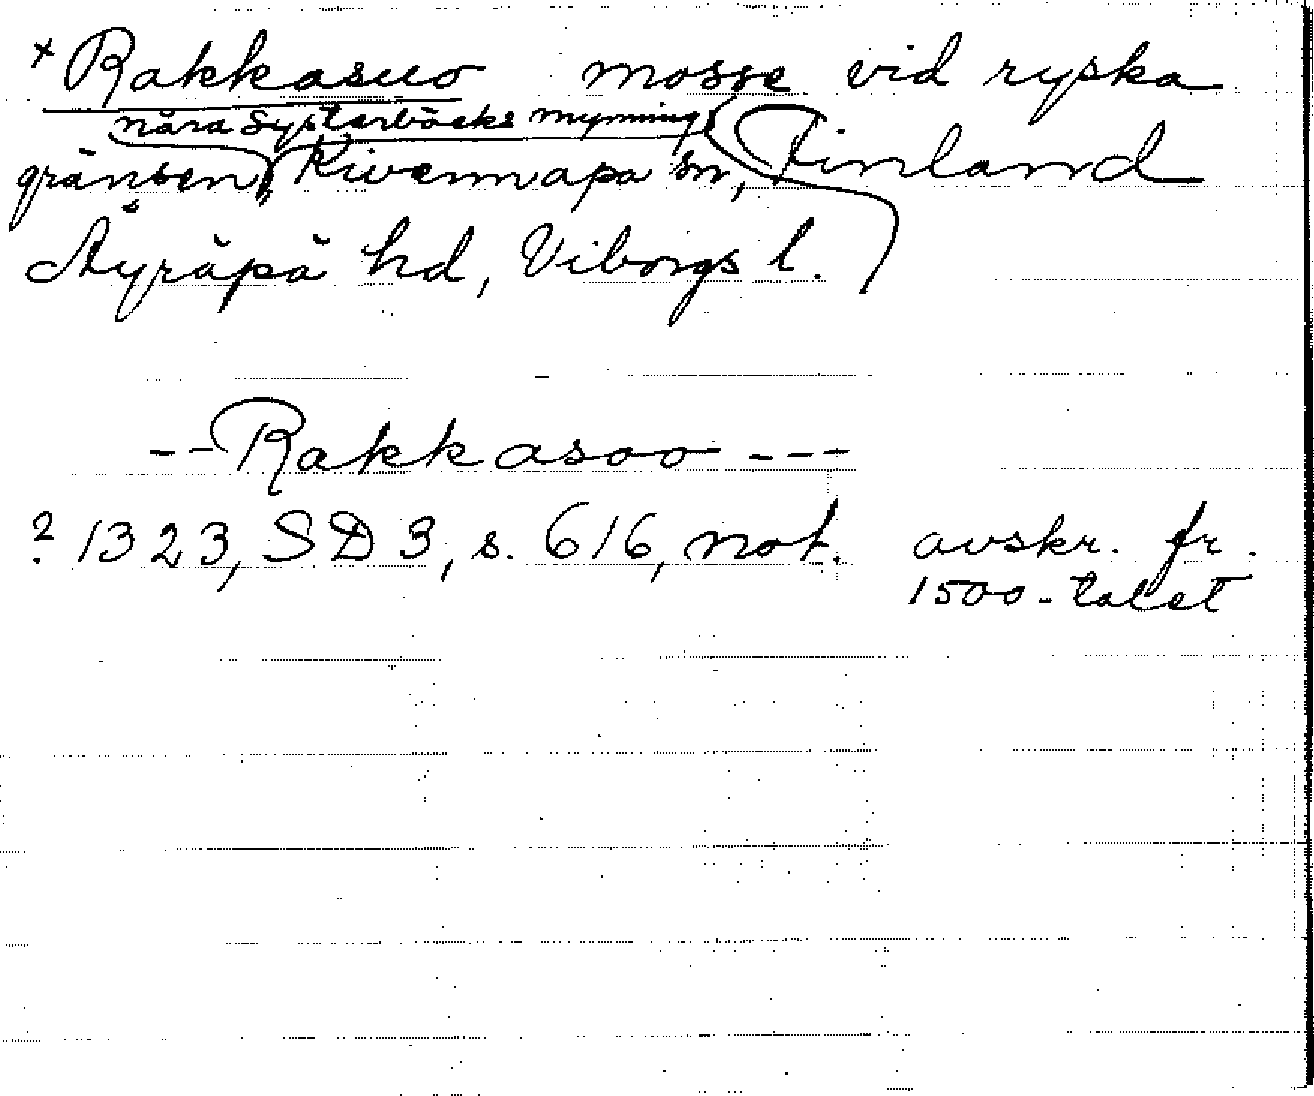 × Rakkasuo mosse vid ryska
nära Systerbäcks mynning
gränsen, Kivennapa sn, Finland
Äyräpä hd, Viborgs l.
-- Rakkasoo ---
? 1323, SD 3, s. 616, not. avskr. fr.
1500-talet